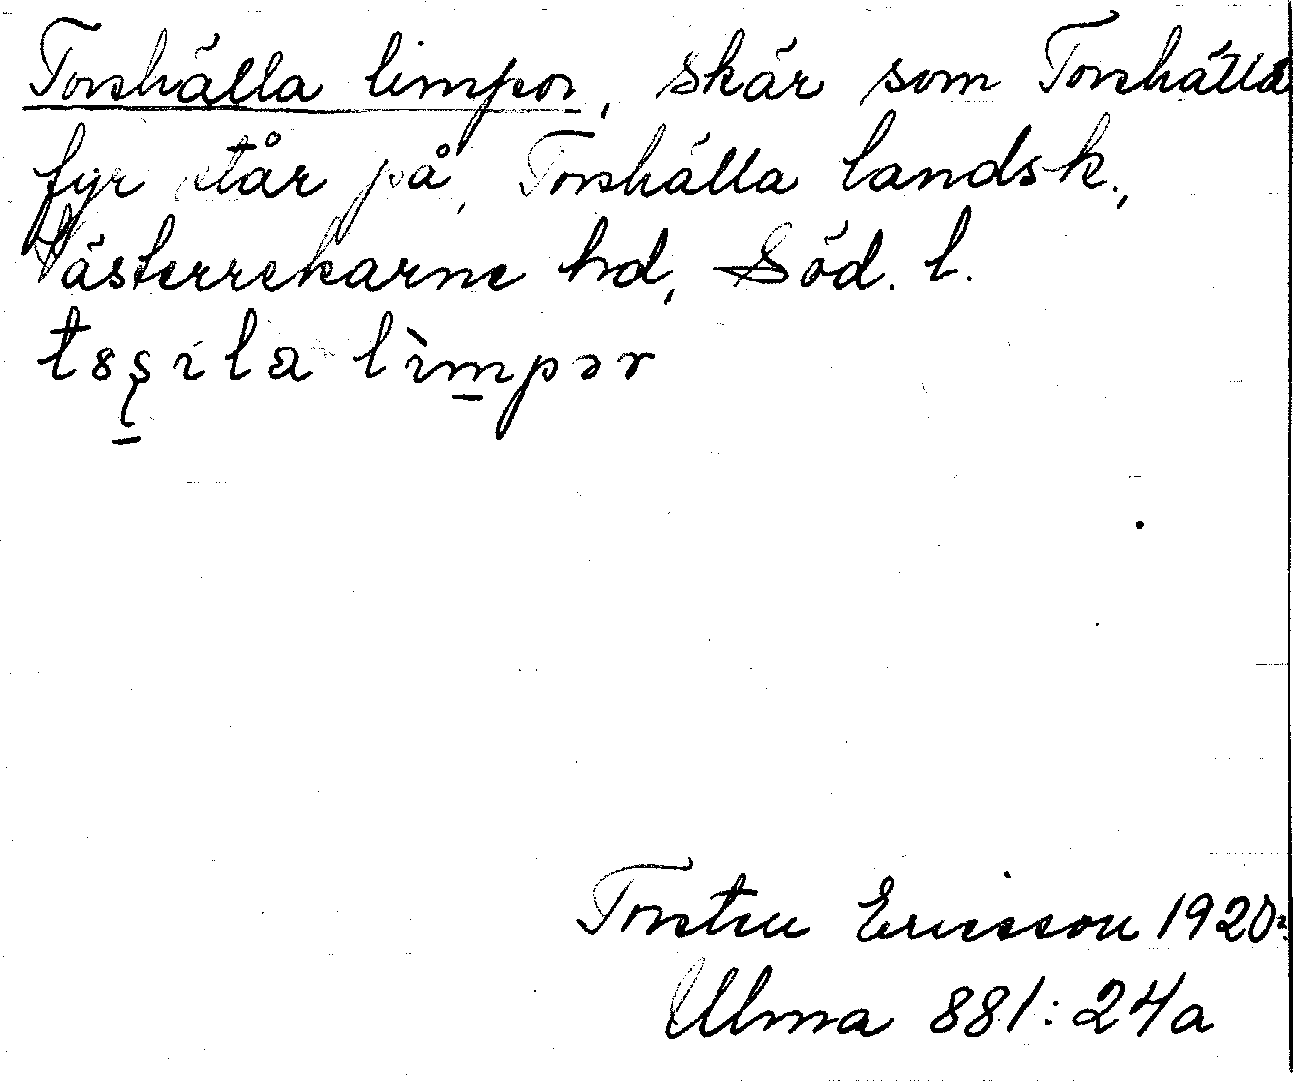 Torshälla limpor, skär som Torshälla
fyr står på, Torshälla landsk.,
Västerrekarne hd, Söd. l.
tsʂíla lìmpər
Torsten Ericsson 1920
Ulma 881:24a